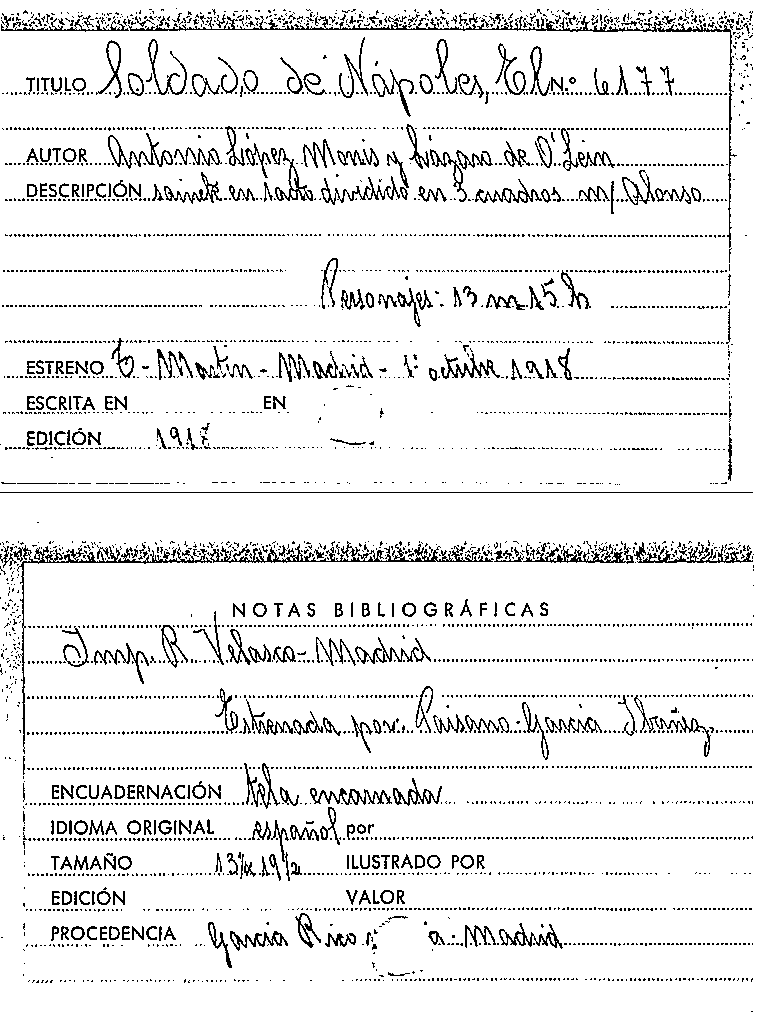 TITULO Soldado de Nápoles, El N.º 6177
AUTOR Antonio López Monis y Lázaro de O'Lein
DESCRIPCIÓN sainete en 1 acto dividido en 3 cuadros m/ Alonso
Personajes: 13 m 15 h
ESTRENO T - Martin - Madrid - 1º octubre 1918
ESCRITA EN EN
EDICIÓN 1918
NOTAS BIBLIOGRÁFICAS
Imp. R. Velasco - Madrid
Estrenada por: Paisano - Garcia Ibañez
ENCUADERNACIÓN tela encarnada
IDIOMA ORIGINAL español por
TAMAÑO 13½ x 19½ ILUSTRADO POR
EDICIÓN VALOR
PROCEDENCIA Garcia Rico y a - Madrid